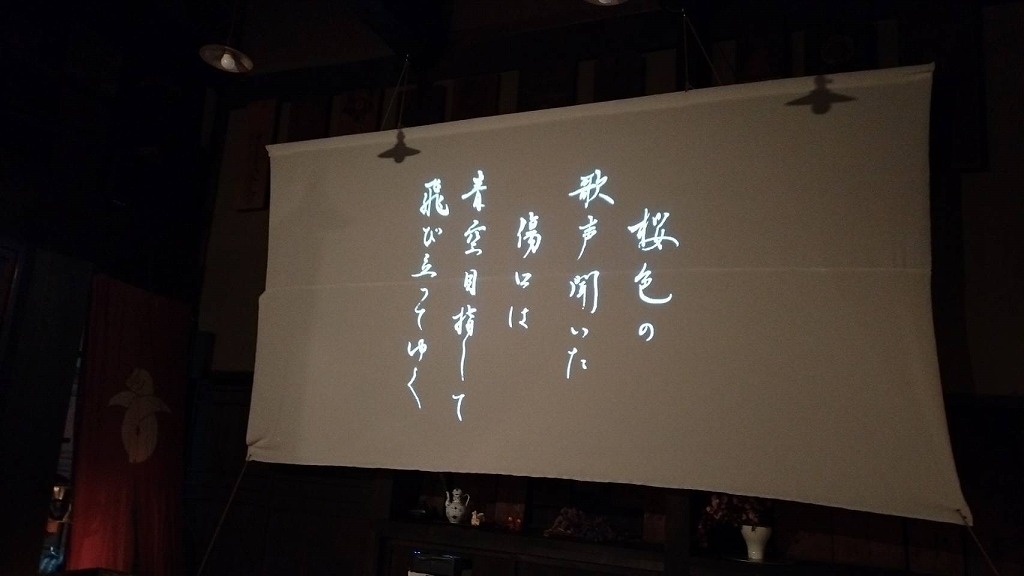 桜色の
歌声聞いた
傷口は
青空目指して
飛び立ってゆく